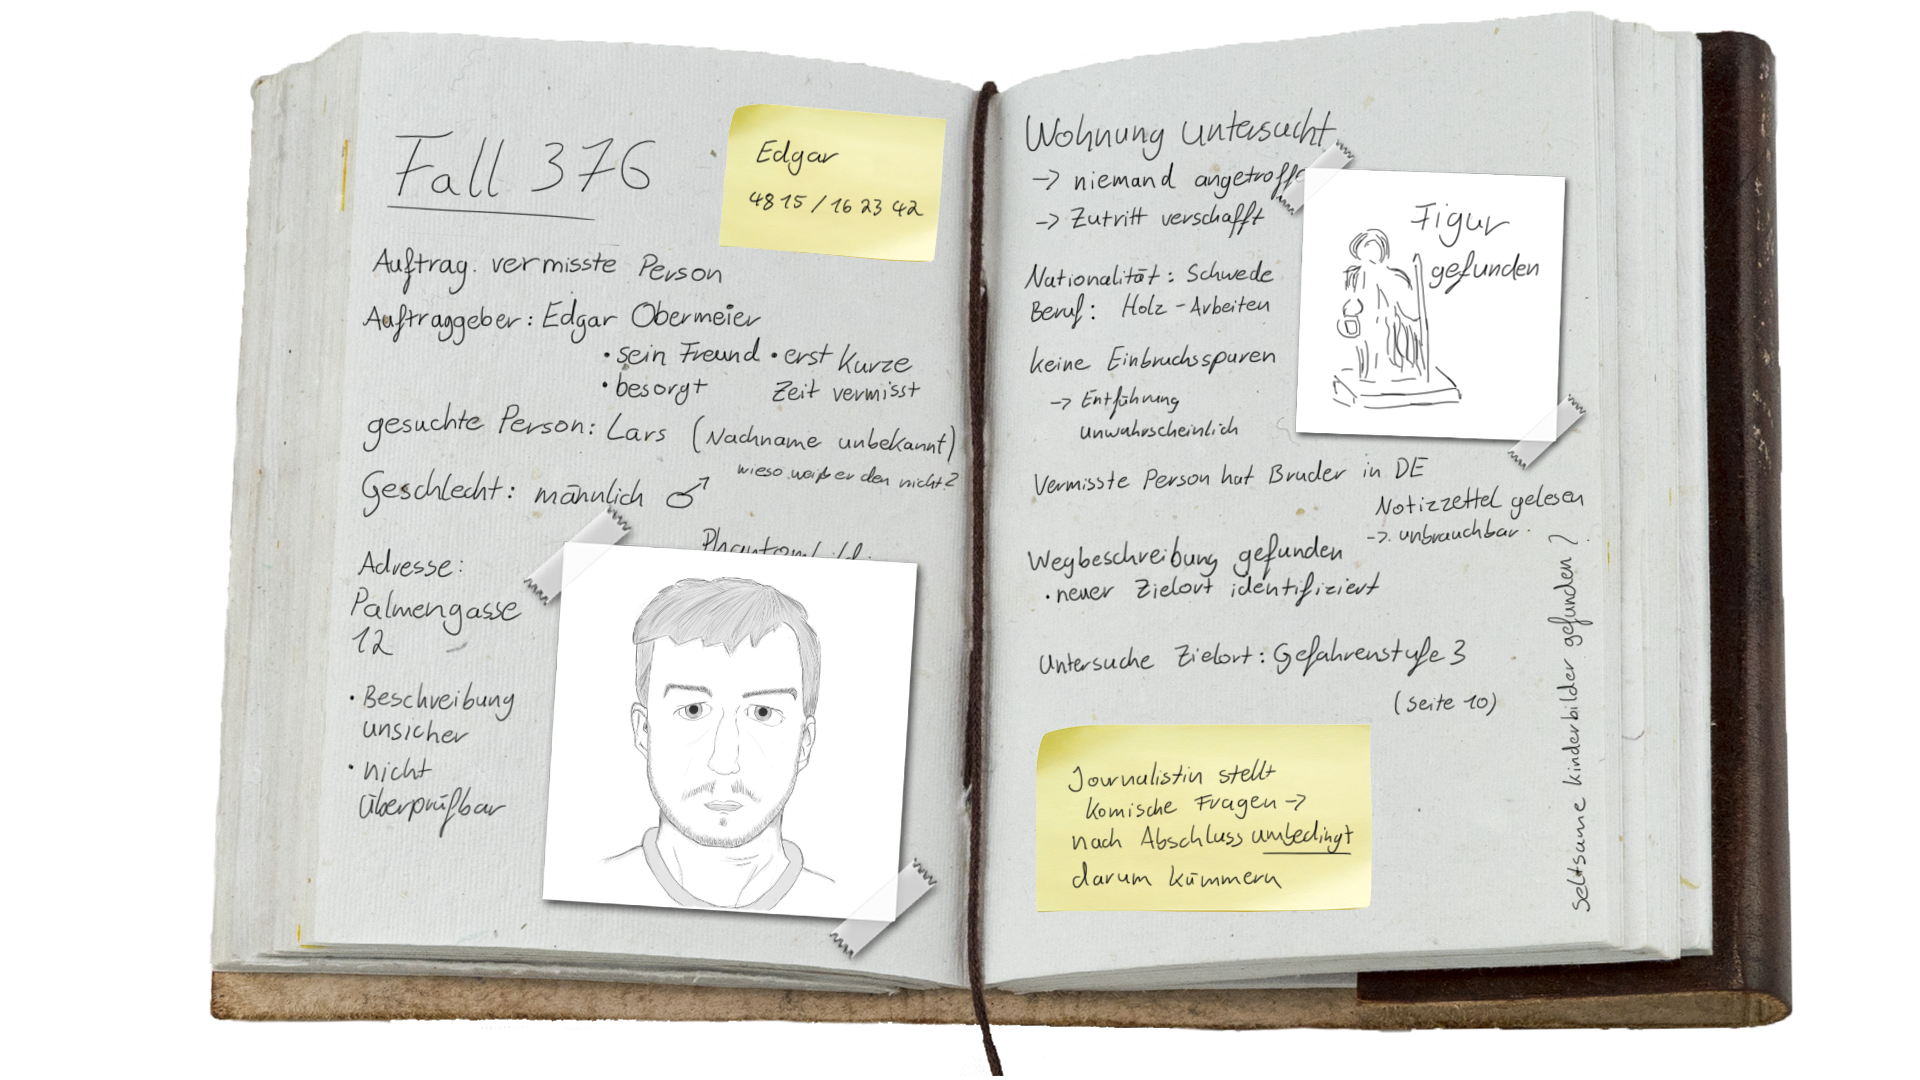 Fall 376
Edgar
48 15 / 16 23 42
Auftrag. vermisste Person
Auftraggeber: Edgar Obermeier
• sein Freund • erst Kurze
• besorgt Zeit vermisst
gesuchte Person: Lars (Nachname unbekannt)
wieso weiß er den nicht?
Geschlecht: männlich ♂
Phantombild:
Adresse:
Palmengasse
12
• Beschreibung
unsicher
• nicht
Überprüfbar
Wohnung untersucht
-> niemand angetroffe
-> Zutritt verschafft
Figur
gefunden
Nationalität: Schwede
Beruf: Holz-Arbeiten
keine Einbruchsspuren
-> Entführung
unwahrscheinlich
Vermisste Person hat Bruder in DE
Notizzettel gelesen
-> unbrauchbar.
Wegbeschreibung gefunden
• neuer Zielort identifiziert
Untersuche Zielort: Gefahrenstufe 3
(Seite 10)
seltsame kinderbilder gefunden?
Journalistin stellt
komische Fragen ->
nach Abschluss umbedingt
darum kümmern